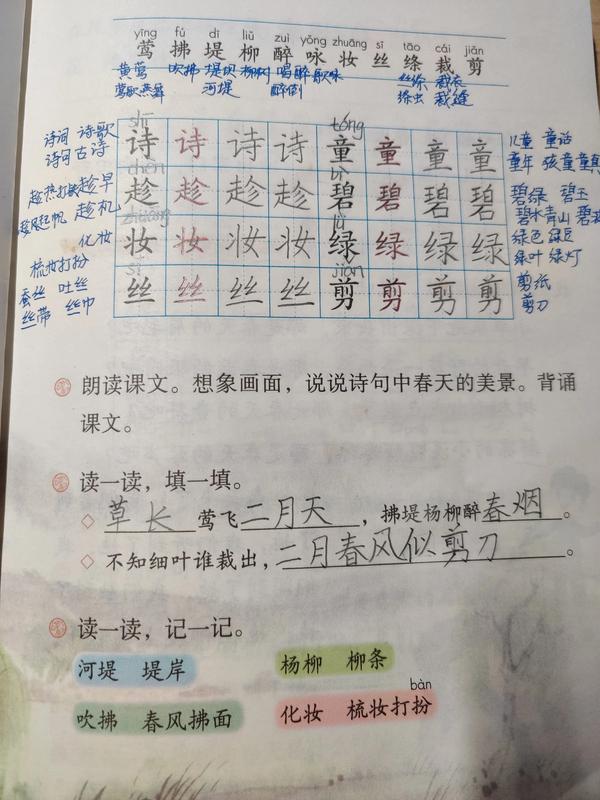 yīng fú dī liǔ zuì yǒng zhuāng sī tāo cái jiǎn
莺 拂 堤 柳 醉 咏 妆 丝 绦 裁 剪
黄莺 吹拂 堤坝 柳树 喝醉 歌咏 丝绦 裁衣
莺歌燕舞 河堤 醉倒 绦虫 裁缝
shī tóng
诗词 诗歌 诗 诗 诗 诗 童 童 童 童 儿童 童话
诗句 古诗 童年
chèn bì
趁热打铁 趁早 趁 趁 趁 趁 碧 碧 碧 碧 碧绿 碧玉
趁机 碧水青山
zhuāng lǜ
化妆 妆 妆 妆 妆 绿 绿 绿 绿 绿色 绿豆
梳妆打扮 绿叶 绿灯
sī jiǎn
蚕丝 吐丝 丝 丝 丝 丝 剪 剪 剪 剪 剪纸
丝带 丝巾 剪刀
朗读课文。想象画面，说说诗句中春天的美景。背诵
课文。
读一读，填一填。
◇ 草长莺飞二月天，拂堤杨柳醉春烟。
◇ 不知细叶谁裁出，二月春风似剪刀。
读一读，记一记。
河堤 堤岸 杨柳 柳条
bàn
吹拂 春风拂面 化妆 梳妆打扮